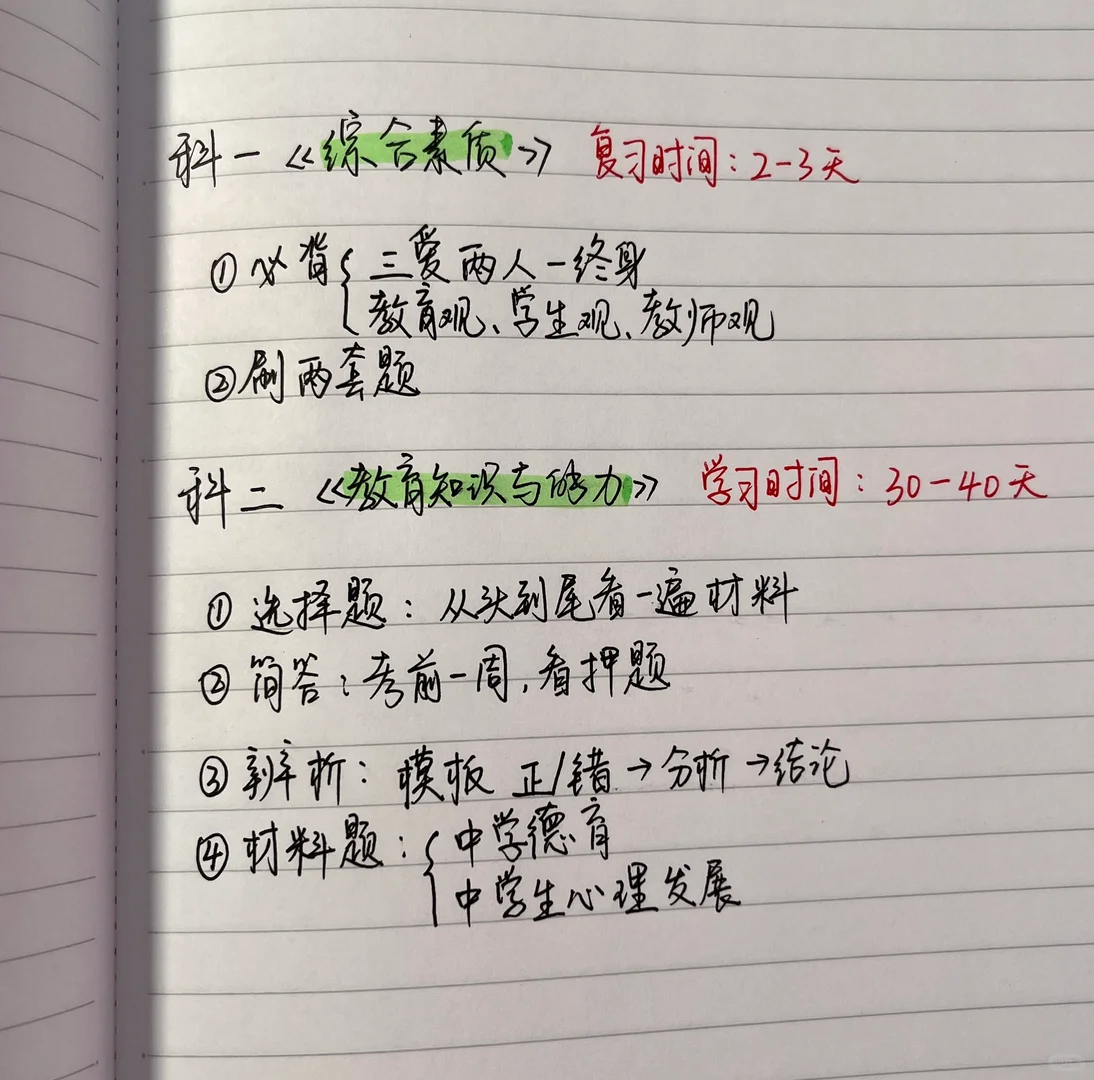 科一《综合素质》 复习时间：2-3天
①必背{三爱两人一终身
教育观、学生观、教师观
②刷两套题
科二《教育知识与能力》 学习时间：30-40天
①选择题：从头到尾看一遍材料
②简答：考前一周，看押题
③辨析：模板 正/错→分析→结论
④材料题：{中学德育
中学生心理发展